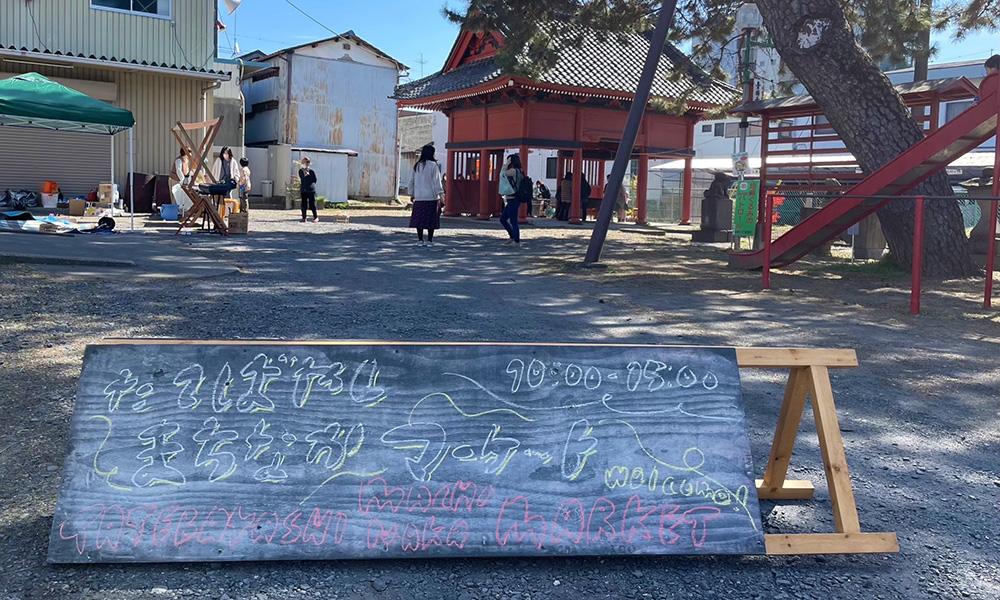 たてばやし 10:00-15:00
まちなかマーケット welcome!
TATEBAYASHI MACHI NAKA MARKET